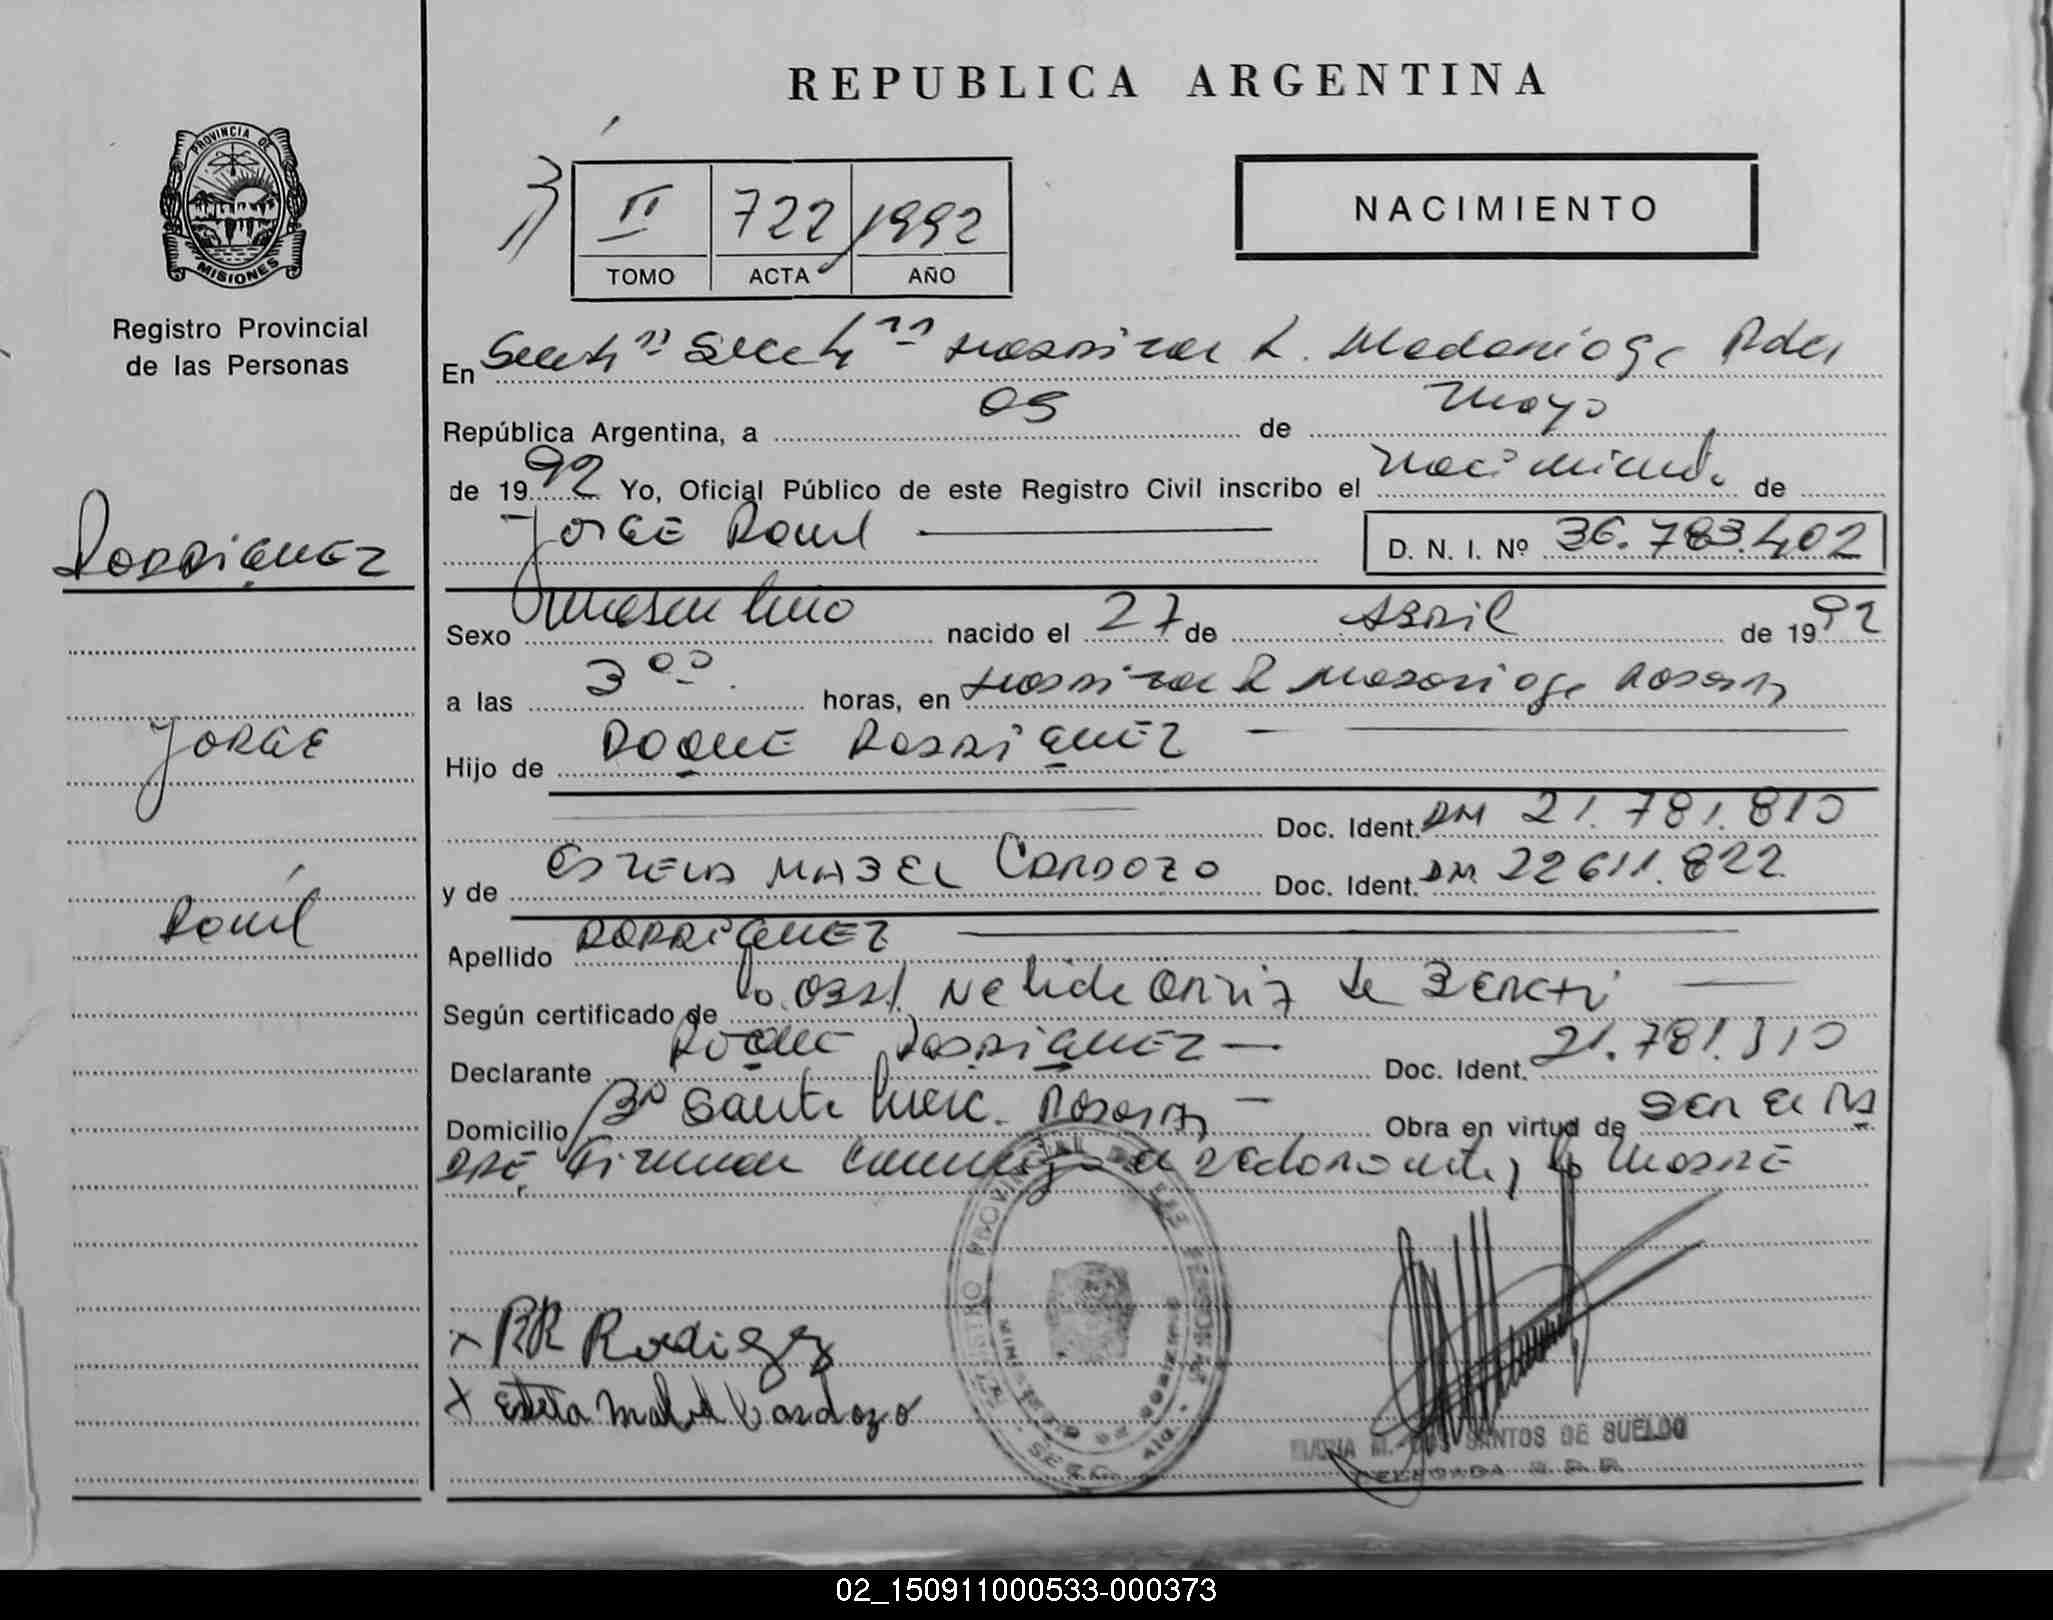 REPUBLICA ARGENTINA
PROVINCIA DE
MISIONES
Registro Provincial
de las Personas
II 722 1992
TOMO ACTA AÑO
NACIMIENTO
En R. Madariaga Pdas
República Argentina, a 05 de Mayo
de 1992 Yo, Oficial Público de este Registro Civil inscribo el nacimiento de
JORGE Raul D. N. I. Nº 36.783.402
RODRIGUEZ
Sexo masculino nacido el 27 de ABRIL de 1992
a las 3 00 horas, en R Madariaga Posadas
JORGE
Hijo de ROQUE RODRIGUEZ
Doc. Ident. DNI 21.781.810
y de ESTELA MABEL CARDOZO Doc. Ident. DNI 22611.822
Raúl
Apellido RODRIGUEZ
Según certificado de Obst. Nelida de
Declarante ROQUE RODRIGUEZ Doc. Ident. 21.781.810
Domicilio Bº Santa Posadas Obra en virtud de ser el PA
DRE, Firman conmigo el declarante y la MADRE
x RR Rodigez
x Estela Mabel Cardozo
REGISTRO PROVINCIAL DE LAS PERSONAS
MINISTERIO DE GOBIERNO
MARIA M. DOS SANTOS DE SUELDO
DELEGADA R. P. P.
02_150911000533-000373